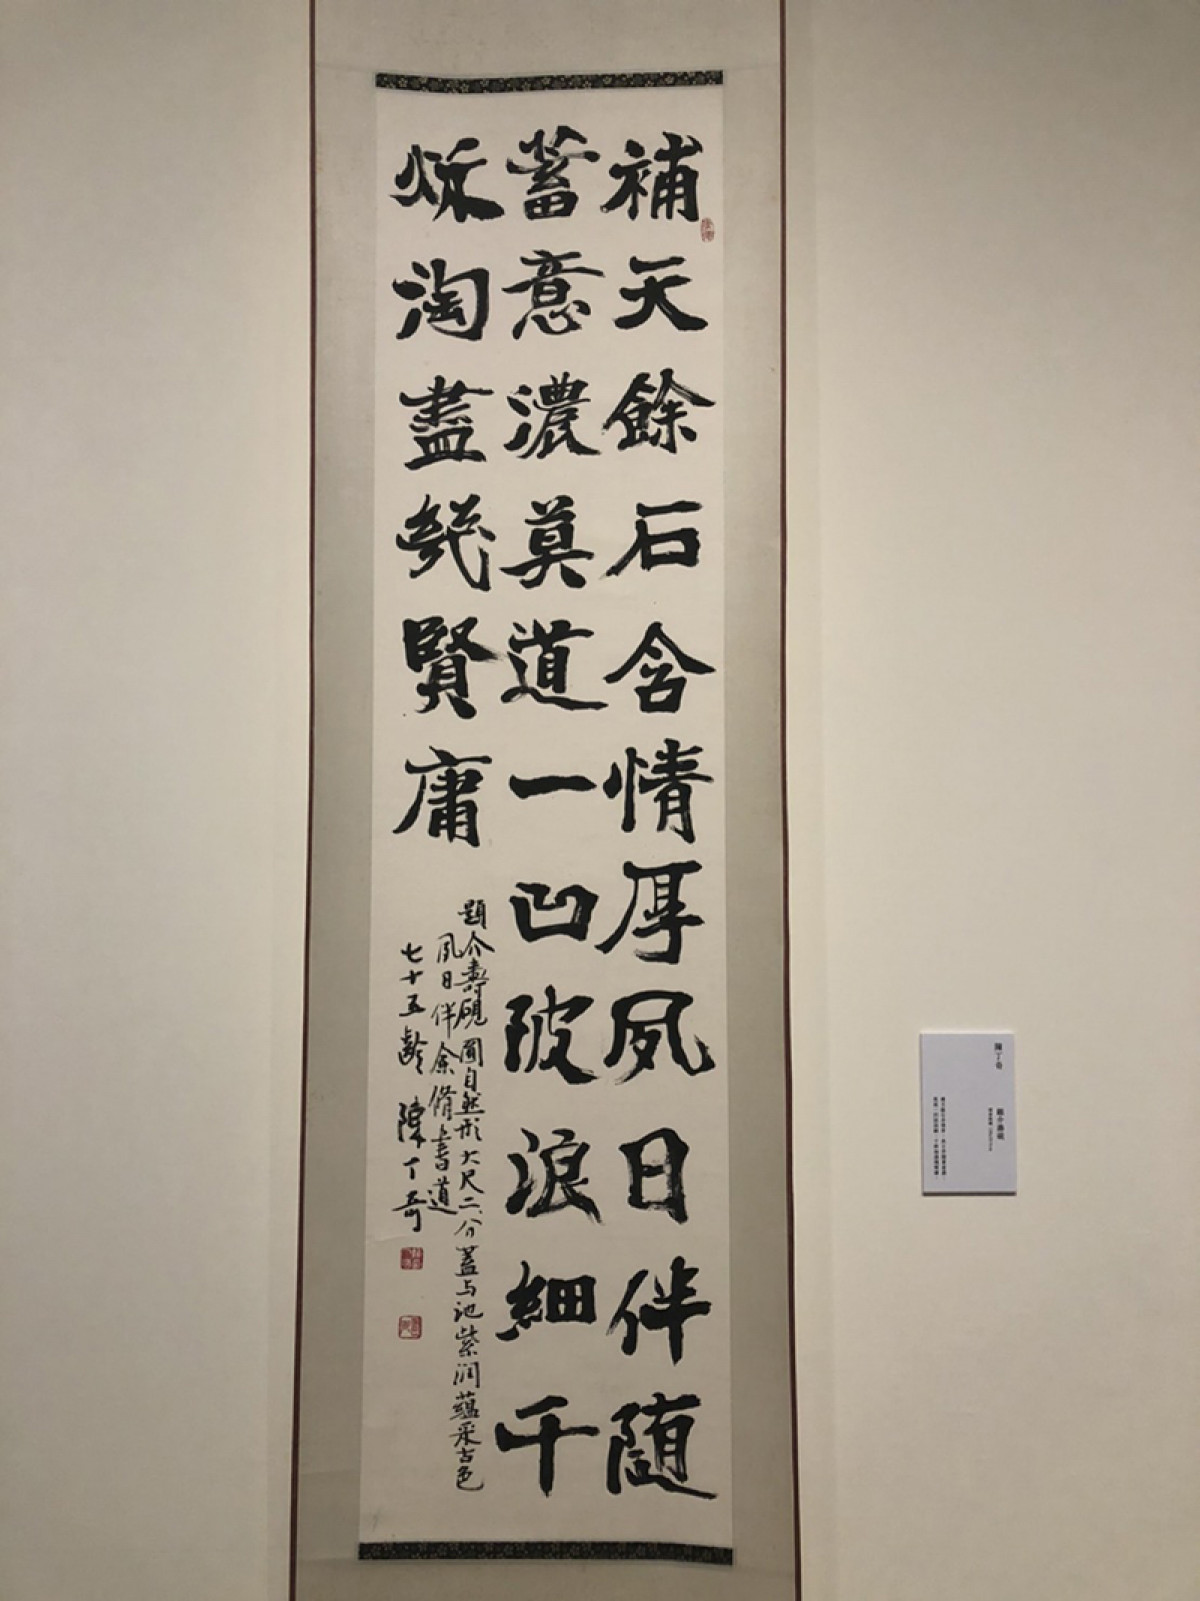 補天餘石含情厚夙日伴随
蓄意濃莫道一凹陂浪細千
秌淘盡幾賢庸
題介壽硯圓自然形大尺二分蓋与池紫润蘊采古色
夙日伴余脩書道
七十五齡陳丁奇
陳丁奇
題介壽硯